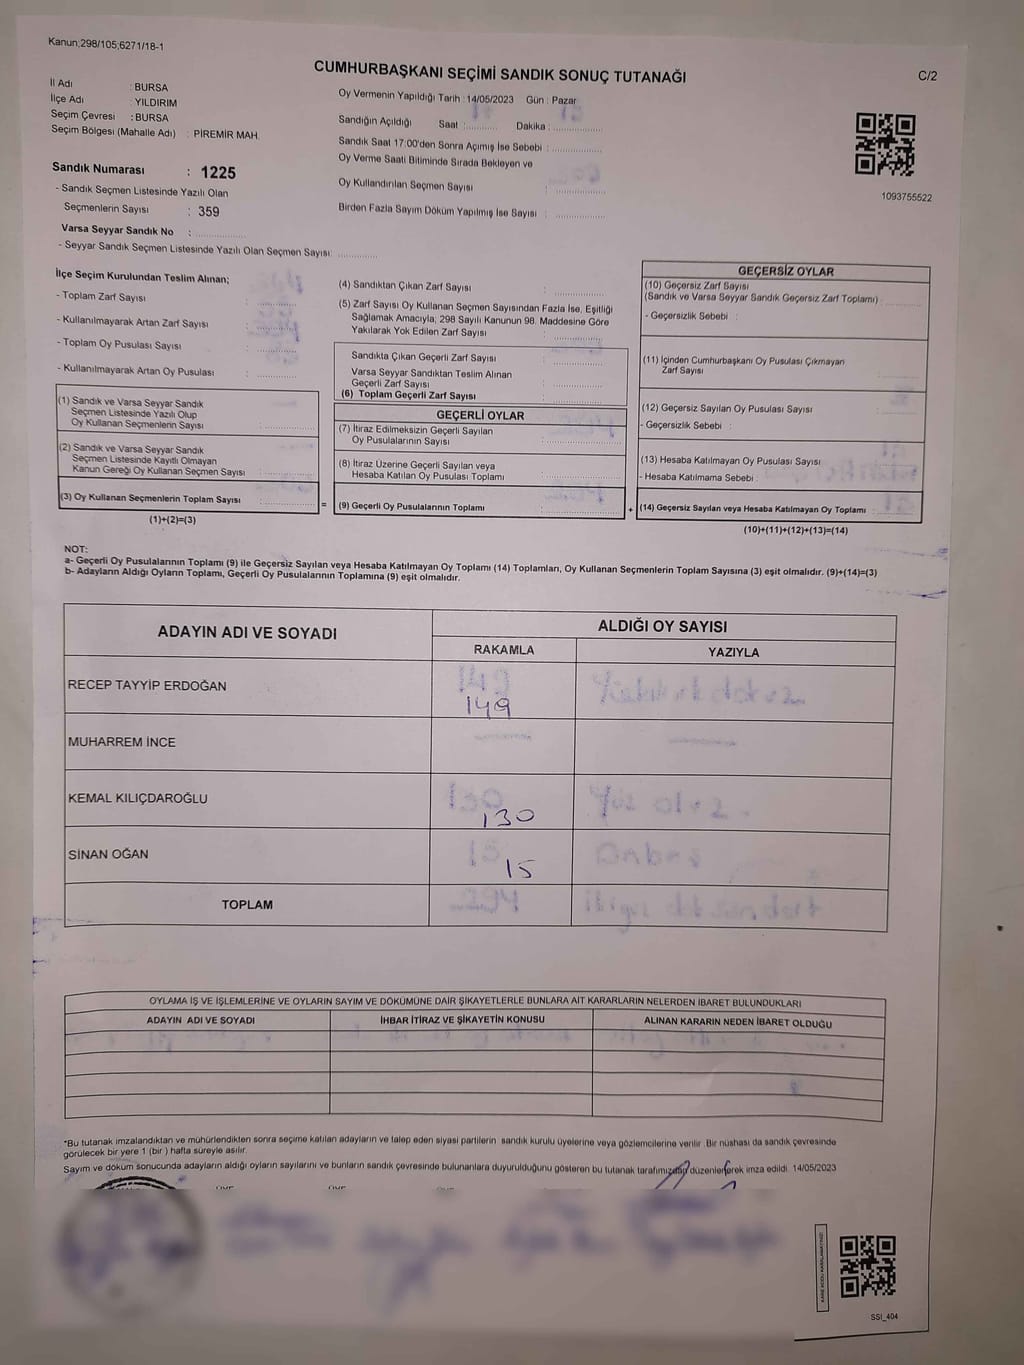 Kanun;298/105;6271/18-1
CUMHURBAŞKANI SEÇİMİ SANDIK SONUÇ TUTANAĞI
C/2
İl Adı : BURSA
İlçe Adı : YILDIRIM
Seçim Çevresi : BURSA
Seçim Bölgesi (Mahalle Adı) : PİREMİR MAH.
Sandık Numarası : 1225
- Sandık Seçmen Listesinde Yazılı Olan
Seçmenlerin Sayısı : 359
Varsa Seyyar Sandık No :
- Seyyar Sandık Seçmen Listesinde Yazılı Olan Seçmen Sayısı:
Oy Vermenin Yapıldığı Tarih : 14/05/2023 Gün : Pazar
Sandığın Açıldığı Saat : Dakika :
Sandık Saat 17:00'den Sonra Açımış İse Sebebi :
Oy Verme Saati Bitiminde Sırada Bekleyen ve
Oy Kullandırılan Seçmen Sayısı :
Birden Fazla Sayım Döküm Yapılmış İse Sayısı :
1093755522
İlçe Seçim Kurulundan Teslim Alınan;
- Toplam Zarf Sayısı :
- Kullanılmayarak Artan Zarf Sayısı :
- Toplam Oy Pusulası Sayısı :
- Kullanılmayarak Artan Oy Pusulası :
(1) Sandık ve Varsa Seyyar Sandık
Seçmen Listesinde Yazılı Olup
Oy Kullanan Seçmenlerin Sayısı :
(2) Sandık ve Varsa Seyyar Sandık
Seçmen Listesinde Kayıtlı Olmayan
Kanun Gereği Oy Kullanan Seçmen Sayısı :
(3) Oy Kullanan Seçmenlerin Toplam Sayısı :
(1)+(2)=(3)
(4) Sandıktan Çıkan Zarf Sayısı :
(5) Zarf Sayısı Oy Kullanan Seçmen Sayısından Fazla İse, Eşitliği
Sağlamak Amacıyla; 298 Sayılı Kanunun 98. Maddesine Göre
Yakılarak Yok Edilen Zarf Sayısı :
Sandıkta Çıkan Geçerli Zarf Sayısı :
Varsa Seyyar Sandıktan Teslim Alınan
Geçerli Zarf Sayısı :
(6) Toplam Geçerli Zarf Sayısı :
GEÇERLİ OYLAR
(7) İtiraz Edilmeksizin Geçerli Sayılan
Oy Pusulalarının Sayısı :
(8) İtiraz Üzerine Geçerli Sayılan veya
Hesaba Katılan Oy Pusulası Toplamı :
= (9) Geçerli Oy Pusulalarının Toplamı :
GEÇERSİZ OYLAR
(10) Geçersiz Zarf Sayısı
(Sandık ve Varsa Seyyar Sandık Geçersiz Zarf Toplamı) :
- Geçersizlik Sebebi :
(11) İçinden Cumhurbaşkanı Oy Pusulası Çıkmayan
Zarf Sayısı :
(12) Geçersiz Sayılan Oy Pusulası Sayısı :
- Geçersizlik Sebebi :
(13) Hesaba Katılmayan Oy Pusulası Sayısı :
- Hesaba Katılmama Sebebi :
+ (14) Geçersiz Sayılan veya Hesaba Katılmayan Oy Toplamı :
(10)+(11)+(12)+(13)=(14)
NOT:
a- Geçerli Oy Pusulalarının Toplamı (9) ile Geçersiz Sayılan veya Hesaba Katılmayan Oy Toplamı (14) Toplamları, Oy Kullanan Seçmenlerin Toplam Sayısına (3) eşit olmalıdır. (9)+(14)=(3)
b- Adayların Aldığı Oyların Toplamı, Geçerli Oy Pusulalarının Toplamına (9) eşit olmalıdır.
ADAYIN ADI VE SOYADI ALDIĞI OY SAYISI
RAKAMLA YAZIYLA
RECEP TAYYİP ERDOĞAN 149
149
MUHARREM İNCE
KEMAL KILIÇDAROĞLU 130 Yüz otuz
130
SİNAN OĞAN 15 Onbeş
15
TOPLAM 294 ikiyüz doksandört
OYLAMA İŞ VE İŞLEMLERİNE VE OYLARIN SAYIM VE DÖKÜMÜNE DAİR ŞİKAYETLERLE BUNLARA AİT KARARLARIN NELERDEN İBARET BULUNDUKLARI
ADAYIN ADI VE SOYADI İHBAR İTİRAZ VE ŞİKAYETİN KONUSU ALINAN KARARIN NEDEN İBARET OLDUĞU
*Bu tutanak imzalandıktan ve mühürlendikten sonra seçime katılan adayların ve talep eden siyasi partilerin sandık kurulu üyelerine veya gözlemcilerine verilir. Bir nüshası da sandık çevresinde
görülecek bir yere 1 (bir) hafta süreyle asılır.
Sayım ve döküm sonucunda adayların aldığı oyların sayılarını ve bunların sandık çevresinde bulunanlara duyurulduğunu gösteren bu tutanak tarafımızdan düzenlenerek imza edildi. 14/05/2023
SSI_404